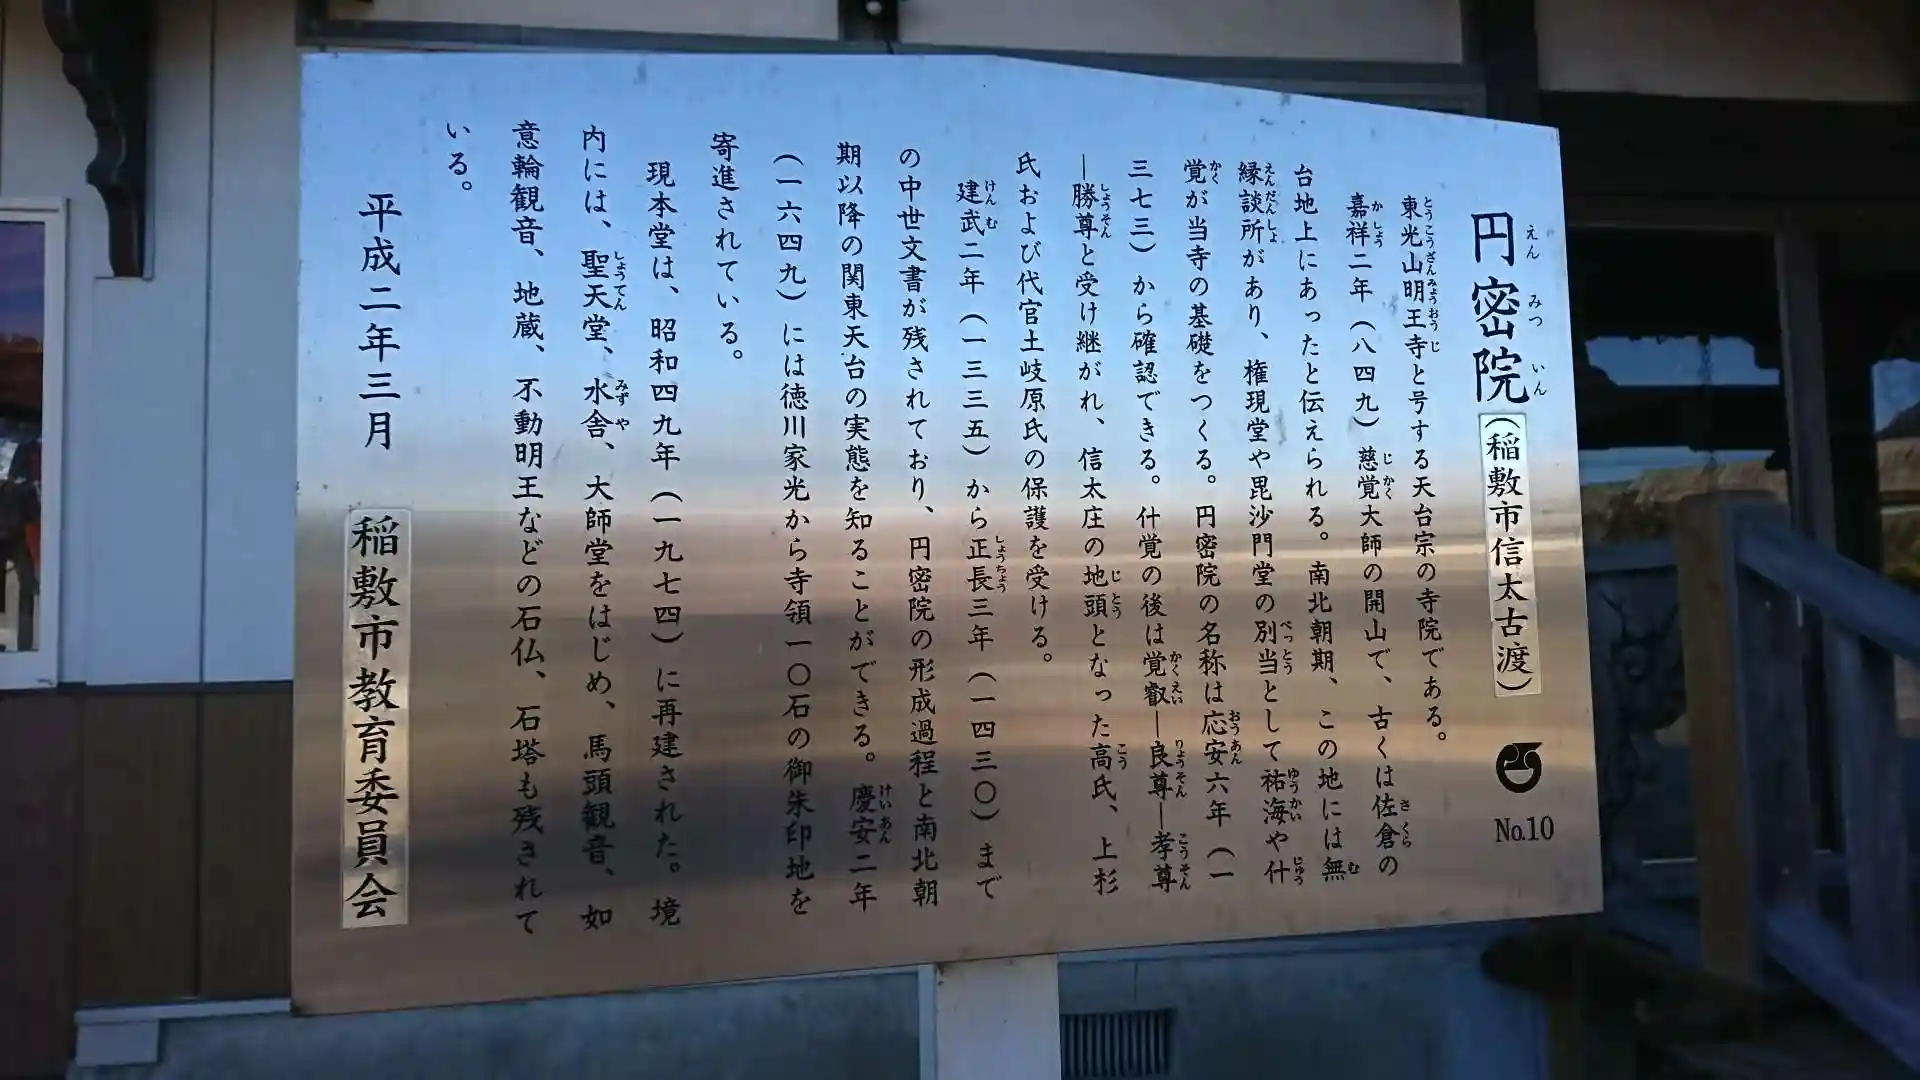 円密院（稲敷市信太古渡） No.10
東光山明王寺と号する天台宗の寺院である。
嘉祥二年（八四九）慈覚大師の開山で、古くは佐倉の
台地上にあったと伝えられる。南北朝期、この地には無
縁談所があり、権現堂や毘沙門堂の別当として祐海や什
覚が当寺の基礎をつくる。円密院の名称は応安六年（一
三七三）から確認できる。什覚の後は覚叡―良尊―孝尊
―勝尊と受け継がれ、信太庄の地頭となった高氏、上杉
氏および代官土岐原氏の保護を受ける。
建武二年（一三三五）から正長三年（一四三〇）まで
の中世文書が残されており、円密院の形成過程と南北朝
期以降の関東天台の実態を知ることができる。慶安二年
（一六四九）には徳川家光から寺領一〇石の御朱印地を
寄進されている。
現本堂は、昭和四九年（一九七四）に再建された。境
内には、聖天堂、水舎、大師堂をはじめ、馬頭観音、如
意輪観音、地蔵、不動明王などの石仏、石塔も残されて
いる。
平成二年三月 稲敷市教育委員会